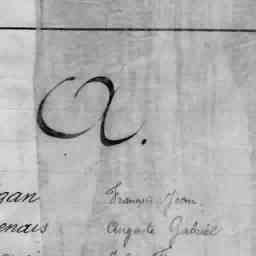 A.
gan François Jean.
enais Auguste Gabriel